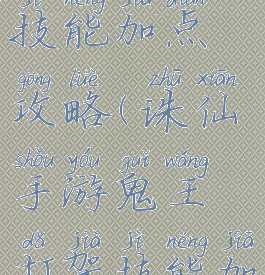 jì néng jiā diǎn
技能加点
gōng lüè zhū xiān
攻略(诛仙
shǒu yóu guǐ wáng
手游鬼王
dǎ jià jì néng jiā
打架技能加